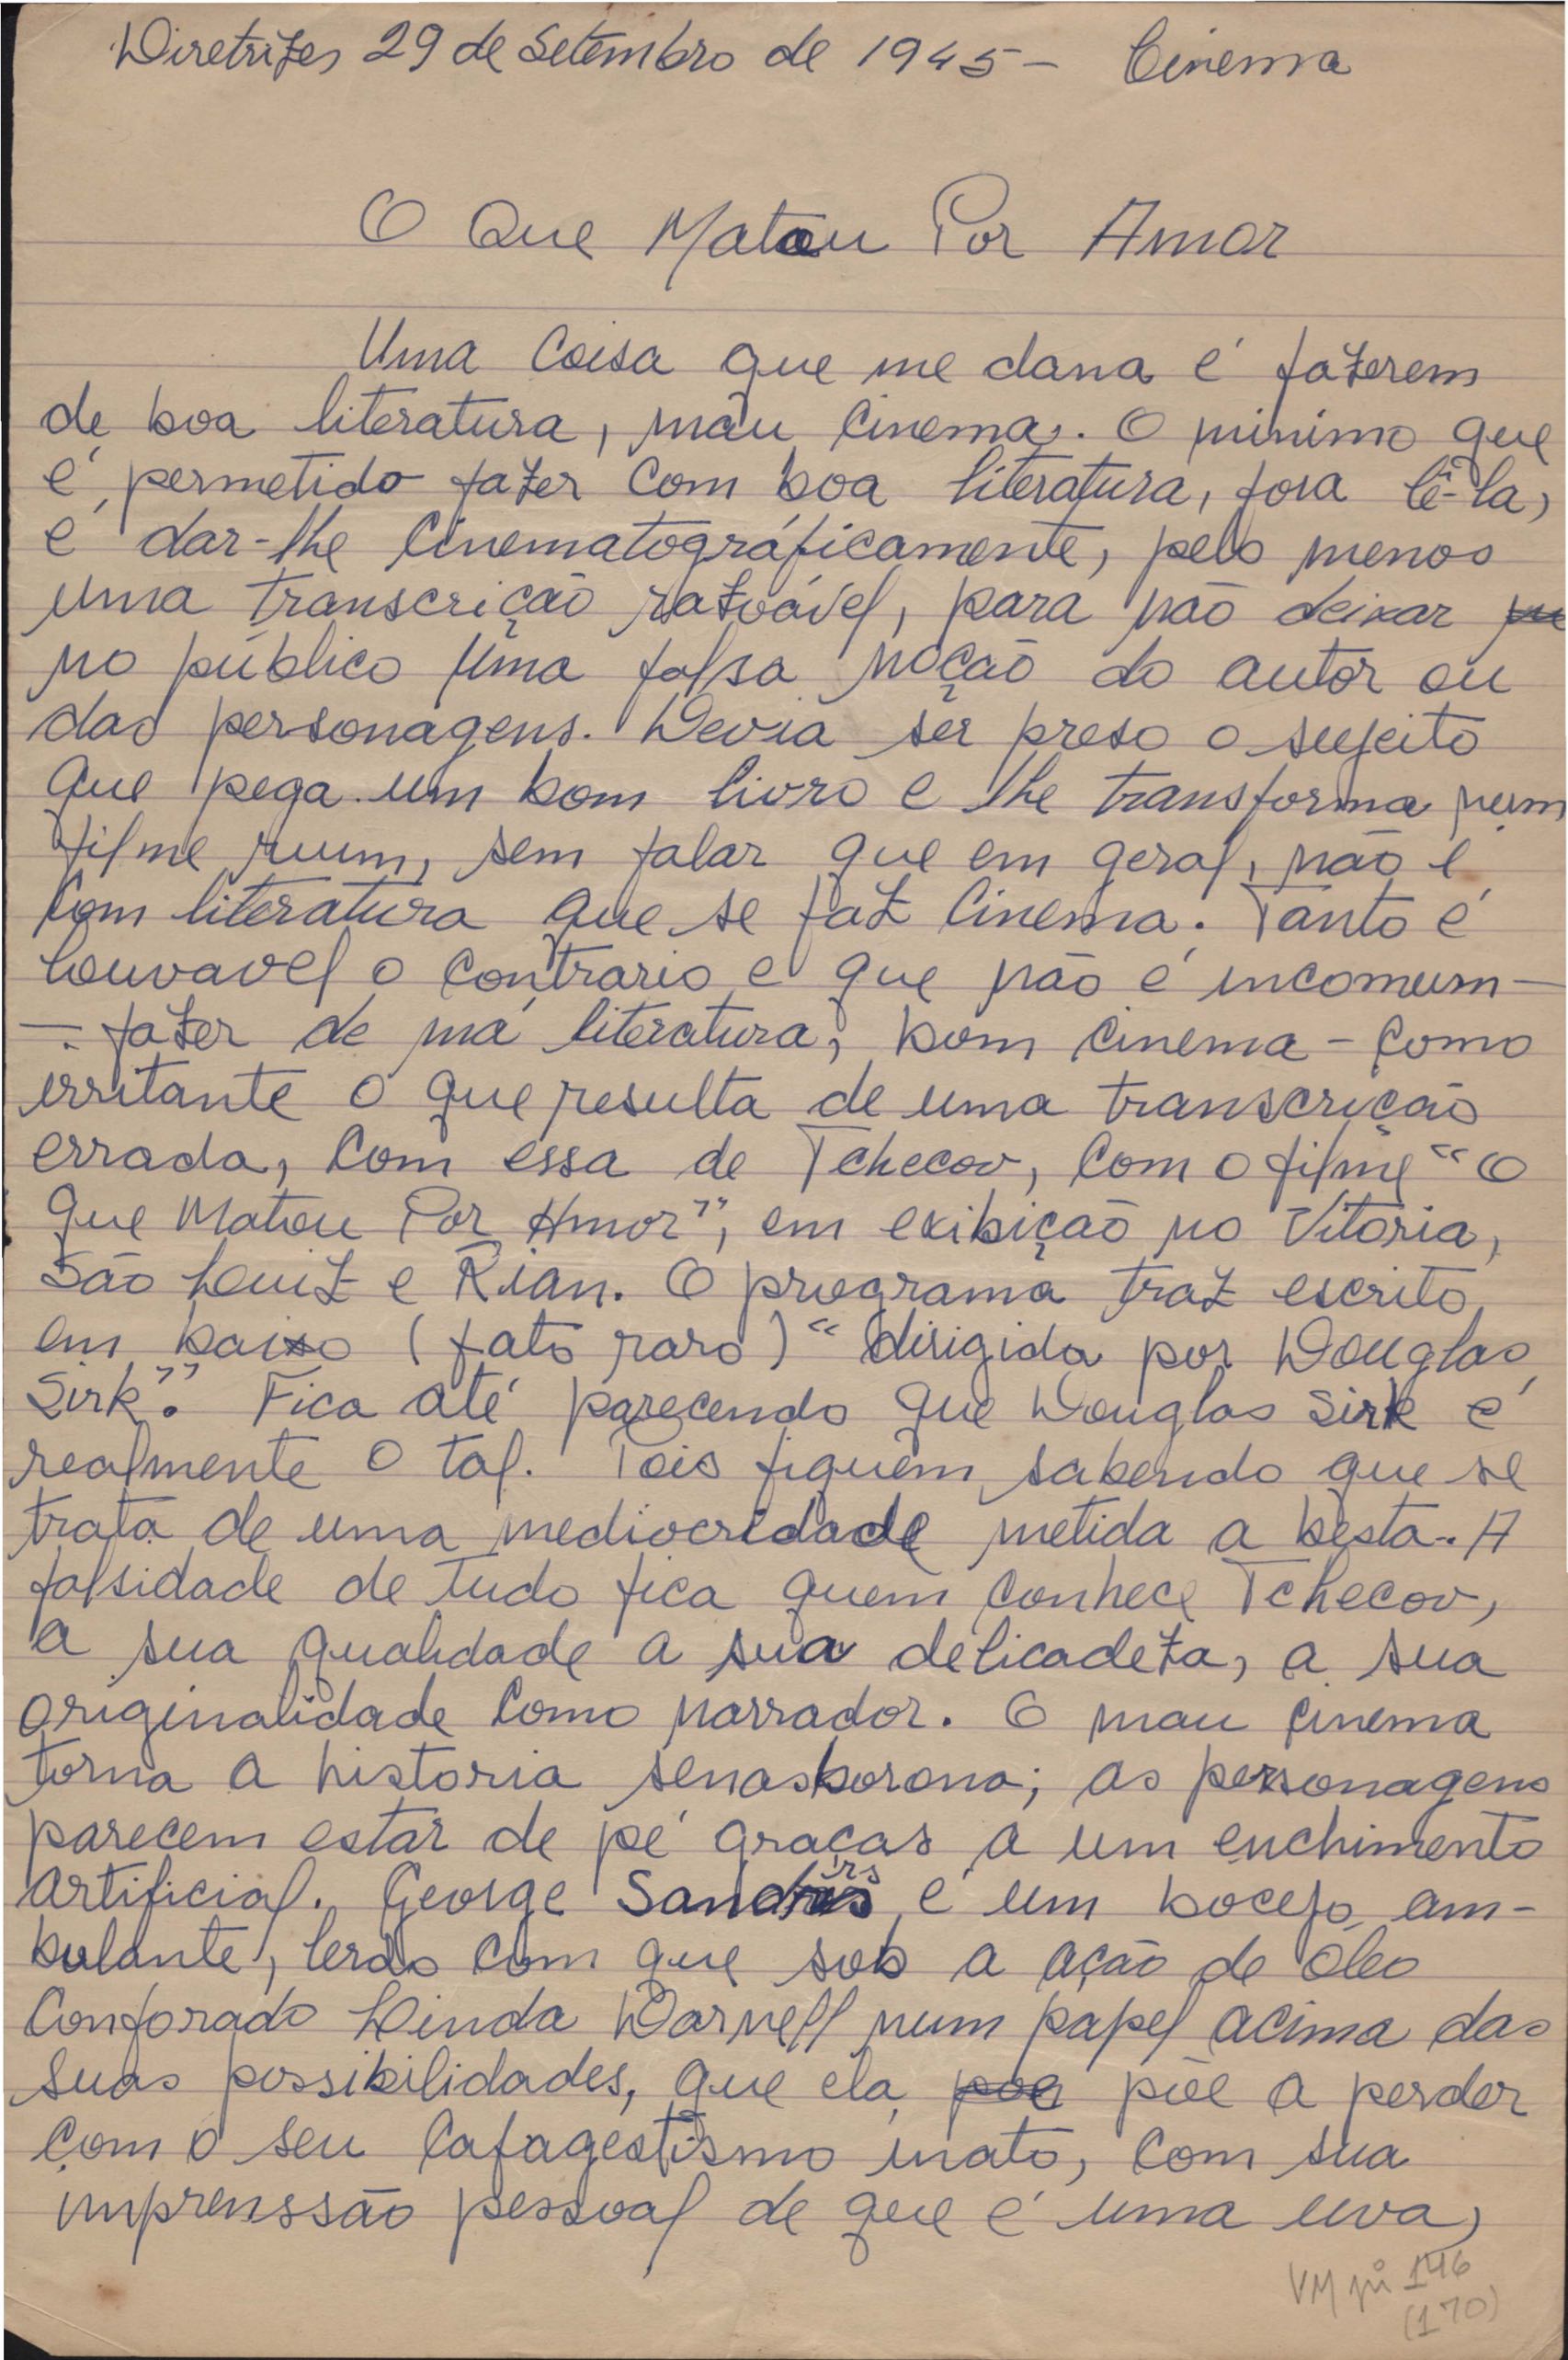 Diretrizes 29 de Setembro de 1945 - Cinema
O Que Matou Por Amor
Uma Coisa que me dana é fazerem
de boa literatura, mau Cinema. O minimo que
é permetido fazer Com boa literatura, fora lê-la,
é dar-lhe Cinematográficamente, pelo menos
uma transcrição razoável, para não deixar
no público uma falsa noção do autor ou
das personagens. Devia ser preso o sujeito
que pega um bom livro e lhe transforma num
filme ruum, sem falar que em geral, não é
Com literatura que se faz Cinema. Tanto é
louvavel o Contrario e que não é incomum -
- fazer de má literatura, bom Cinema - Como
irritante o que resulta de uma transcrição
errada, Com essa de Tchecov, Com o filme "O
Que Matou Por Amor", em exibição no Vitoria,
São Luiz e Rian. O programa traz escrito,
em baixo (fato raro) "dirigida por Douglas
Sirk". Fica até parecendo que Douglas Sirk é
realmente o tal. Pois fiquem sabendo que se
trata de uma mediocridade metida a besta. A
falsidade de tudo fica quem Conhece Tchecov,
a sua qualidade a sua delicadeza, a sua
originalidade Como narrador. O mau Cinema
torna a historia senasborona; as personagens
parecem estar de pé graças a um enchimento
artificial. George Sanders é um bocejo am-
bulante, lerdo Com que sob a ação de óleo
Conforado Linda Darnell num papel acima das
suas possibilidades, que ela põe a perder
Com o seu Cafagestismo inato, Com sua
imprenssão pessoal de que é uma uva,
VM pi 146
(170)